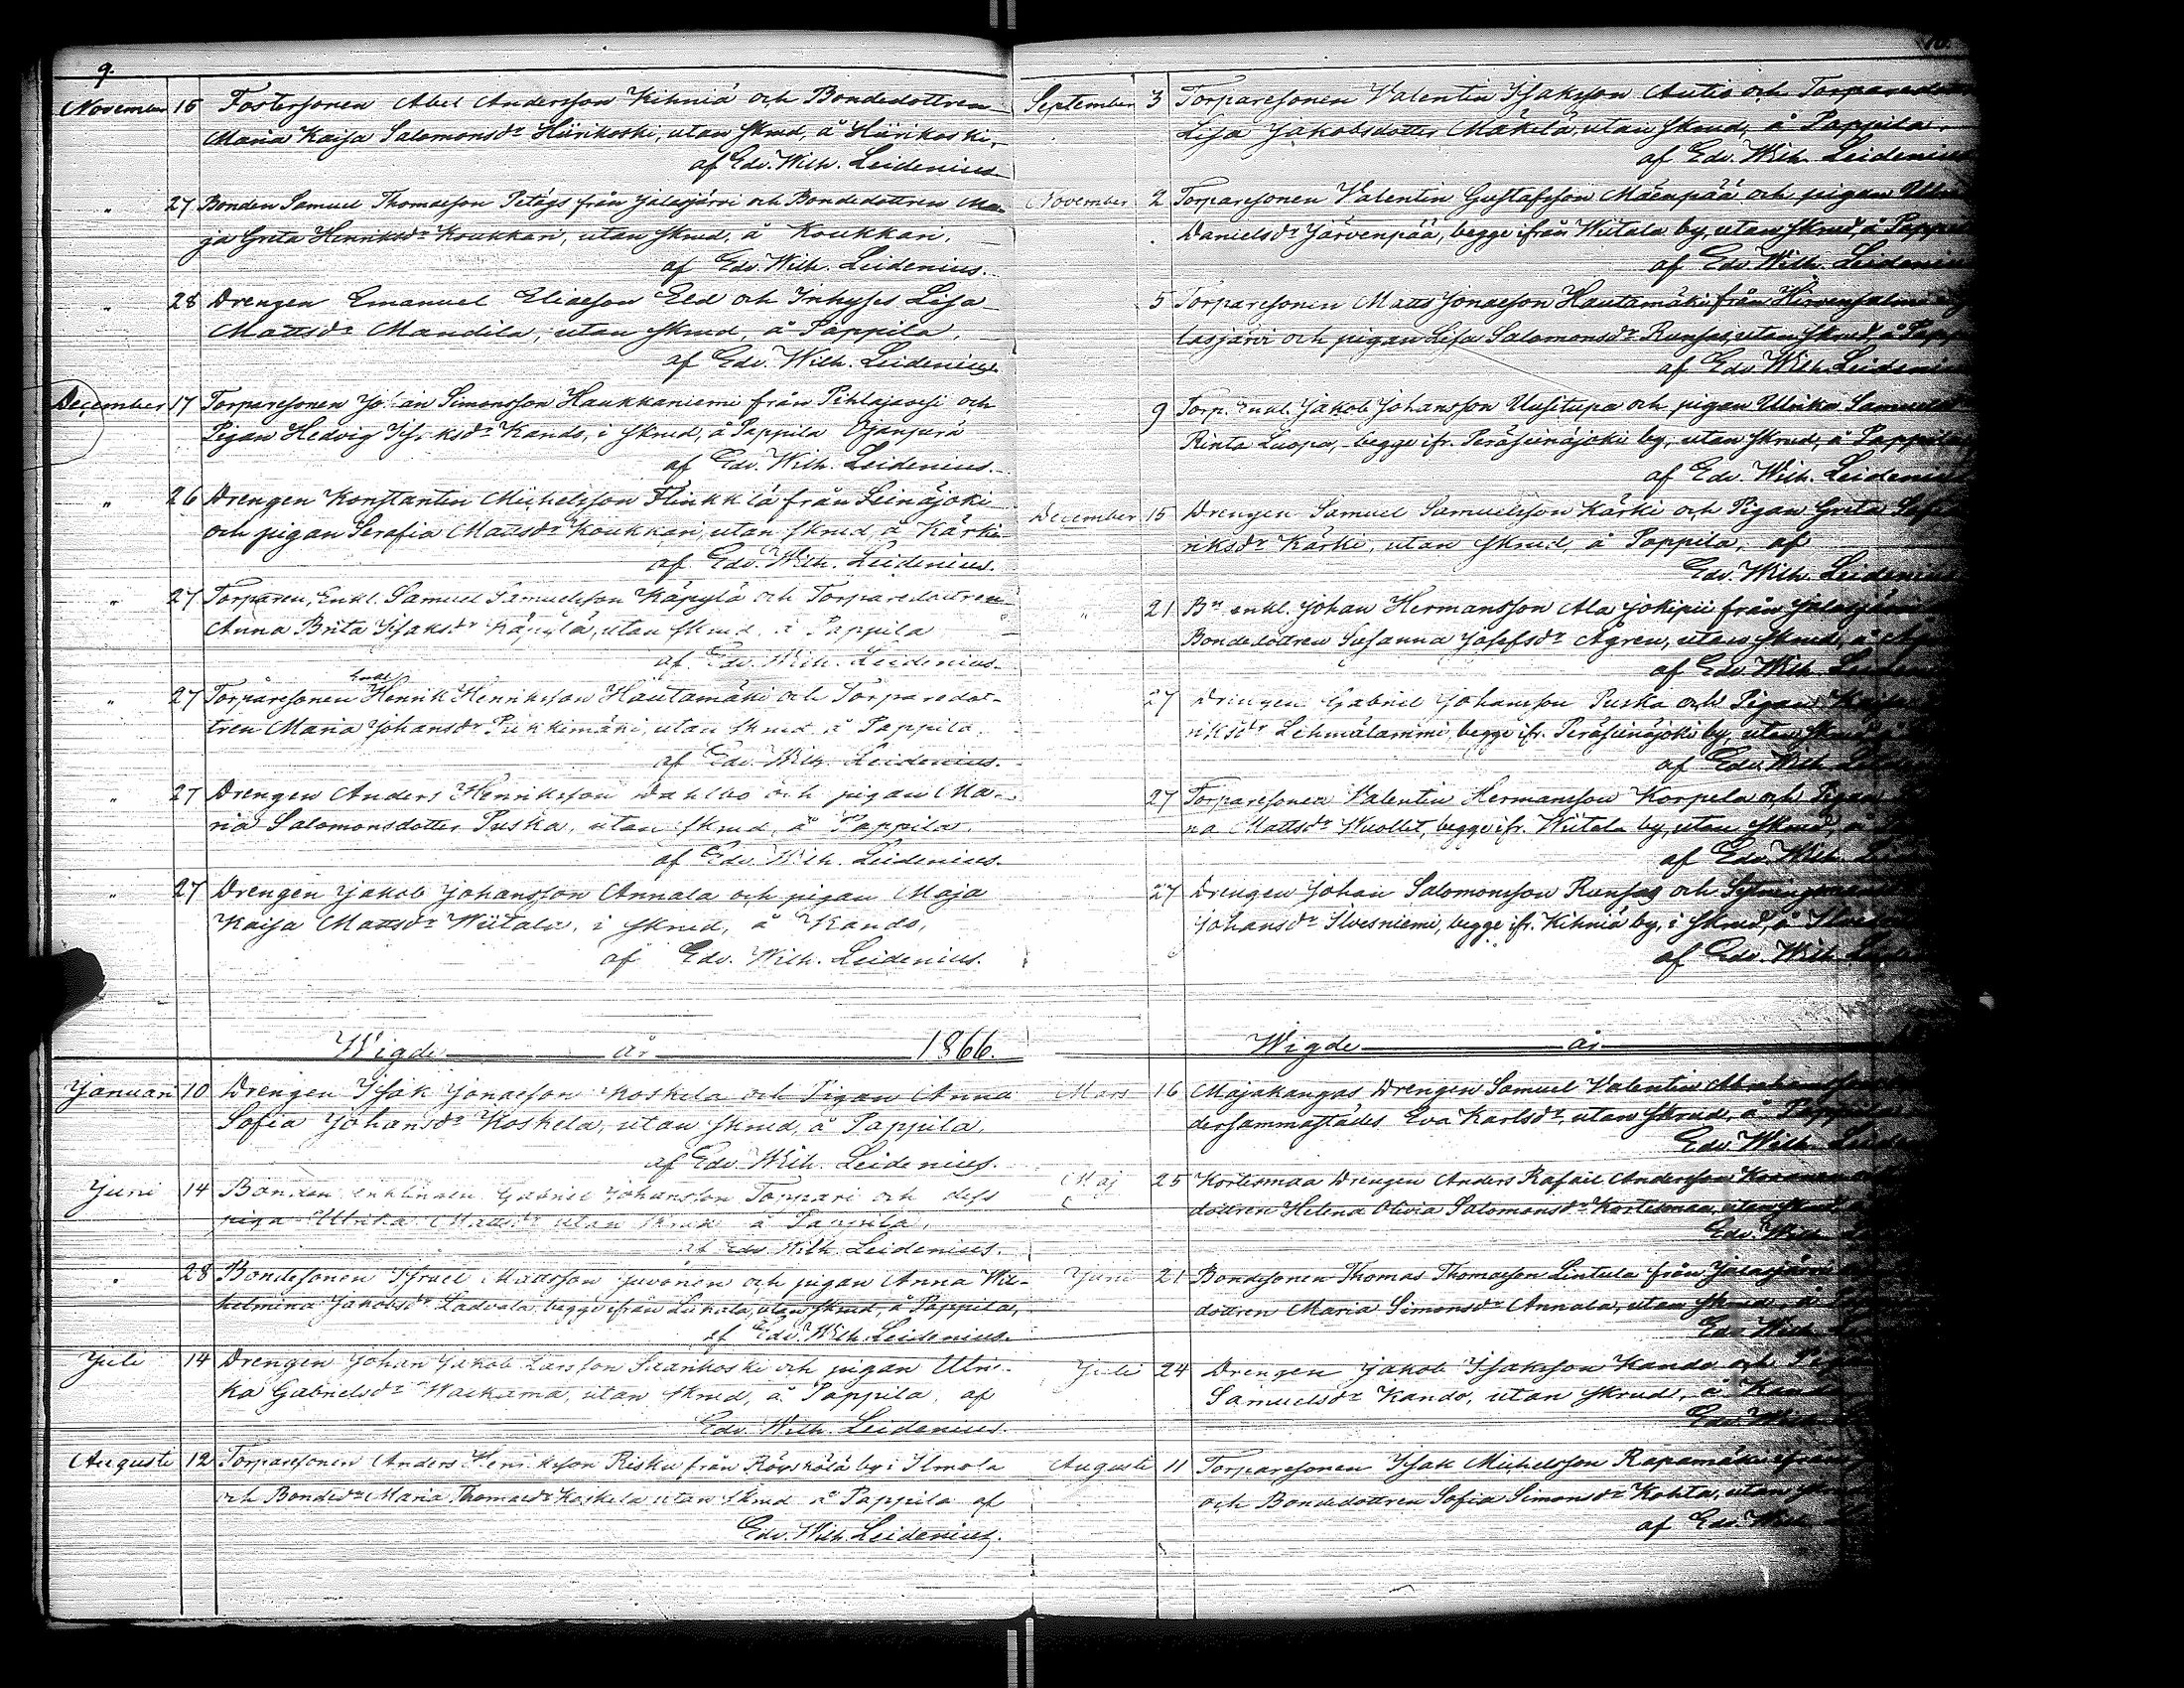 9.
November 15 Fostersonen Abel Andersson Kihniä och Bondedottren
Maria Kaisa Salomonsdr Hiirikoski, utan skrud, å Hiirikoski,
af Edv. Wilh. Leidenius.
" 27 Bonden Samuel Thomasson Petäys från Jalasjärvi och Bondedottren Ma-
ja Greta Henriksdr Koukkari, utan skrud, å Koukkari,
af Edv. Wilh. Leidenius.
" 28 Drengen Emanuel Eliaeson Eld och Inhyses Lisa
Mattsdr Mandila, utan skrud, å Pappila,
af Edv. Wilh. Leidenius.
December 17 Torparesonen Johan Simonsson Haukkaniemi från Pihlajavesi och
Pigan Hedvig Isaksdr Kando, i skrud, å Pappila Ojanperä
af Edv. Wilh. Leidenius.
" 26 Drengen Konstantin Michelsson Flinkkilä från Seinäjoki
och pigan Serafia Mattsdr Koukkari, utan skrud, å Kärki
af Edv. Wilh. Leidenius.
" 27 Torparen, Enkl. Samuel Samuelsson Käpylä och Torparedottren
Anna Brita Isaksdr Käpylä, utan skrud, å Pappila
af Edv. Wilh. Leidenius.
" 27 Torparesonen Enkl. Henrik Henriksson Hautamäki och Torparedot-
tren Maria Johansdr Pirkkimäki, utan skrud, å Pappila.
af Edv. Wilh. Leidenius.
" 27 Drengen Anders Henriksson Dahlbo och pigan Ma-
ria Salomonsdotter Puska, utan skrud, å Pappila.
af Edv. Wilh. Leidenius.
" 27 Drengen Jakob Johansson Annala och pigan Maja
Kaisa Mattsdr Wiitala, i skrud, å Kando,
af Edv. Wilh. Leidenius.
Wigde år 1866.
Januari 10 Drengen Isak Jonaeson Koskela och Pigan Anna
Sofia Johansdr Koskela, utan skrud, å Pappila,
af Edv. Wilh. Leidenius.
Juni 14 Bonden enklingen Gabriel Johansson Toppari och dess
piga Ulrika Mattsdr utan skrud å Pappila,
af Edv. Wilh. Leidenius.
" 28 Bondesonen Israel Mattsson Juvonen och pigan Anna Wil-
helmina Jakobsdr Ladvala, begge ifrån Luhala, utan skrud, å Pappila,
af Edv. Wilh. Leidenius.
Juli 14 Drengen Johan Jakob Larsson Saarikoski och pigan Ulri-
ka Gabrielsdr Waskama, utan skrud, å Pappila, af
Edv. Wilh. Leidenius.
Augusti 12 Torparesonen Anders Henriksson Risku från Röyskölä by i Ilmola
och Bondedr Maria Thomasdr Koskela utan skrud å Pappila af
Edv. Wilh. Leidenius.
September 3 Torparesonen Valentin Isaksson Autio och
Lisa Jakobsdotter Mäkelä, utan skrud, å Pappila,
af Edv. Wilh. Leidenius
November 2 Torparesonen Valentin Gustafsson Mäenpää och pigan
Danielsdr Järvenpää, begge ifrån Wiitala by, utan skrud, å
af Edv. Wilh. Leidenius
5 Torparesonen Matts Jonaeson Hautamäki från
lasjärvi och pigan Lisa Salomonsdr Runsas, utan skrud å
af Edv. Wilh. Leidenius
9 Torp. Enkl. Jakob Johansson Uusitupa och pigan Ulrika
Rinta Luopa, begge ifr. Peräseinäjoki by, utan skrud, å Pappila
af Edv. Wilh. Leidenius
December 15 Drengen Samuel Samuelsson Kärki och Pigan Greta
riksdr Kärki, utan skrud, å Pappila, af
Edv. Wilh. Leidenius
" 21 Bn enkl. Johan Hermansson Ala Jokipii från Jalasjärvi
Bondedottren Susanna Josefsdr Ågren, utan skrud, å
af Edv. Wilh.
27 Drengen Gabriel Johansson Puska och Pigan
riksdr Lehmälammi, begge ifr. Peräseinäjoki by, utan skrud
af Edv. Wilh.
27 Torparesonen Valentin Hermansson Korpela och Pigan
na Mattsdr Wuollet, begge ifr. Wiitala by, utan skrud, å
af Edv. Wilh.
27 Drengen Johan Salomonsson Runsas och
Johansdr Ilvesniemi, begge ifr. Kihniä by, i skrud, å
af Edv. Wilh.
Wigde år
Mars 16 Majakangas Drengen Samuel Valentin
dersammastädes Eva Karlsdr, utan skrud, å
Edv. Wilh.
Maj 25 Kortesmaa Drengen Anders Rafael Andersson
dottren Helena Olivia Salomonsdr Kortesmaa, utan skrud
Edv. Wilh.
Juni 21 Bondesonen Thomas Thomasson Lintula från Jalasjärvi
dottren Maria Simonsdr Annala, utan skrud,
Edv. Wilh.
Juli 24 Drengen Jakob Isaksson Kando och
Samuelsdr Kando, utan skrud, å Kando
Edv. Wilh.
Augusti 11 Torparesonen Isak Michelsson Rapamäki ifrån
och Bondedottren Sofia Simonsdr Kohta, utan
af Edv. Wilh.